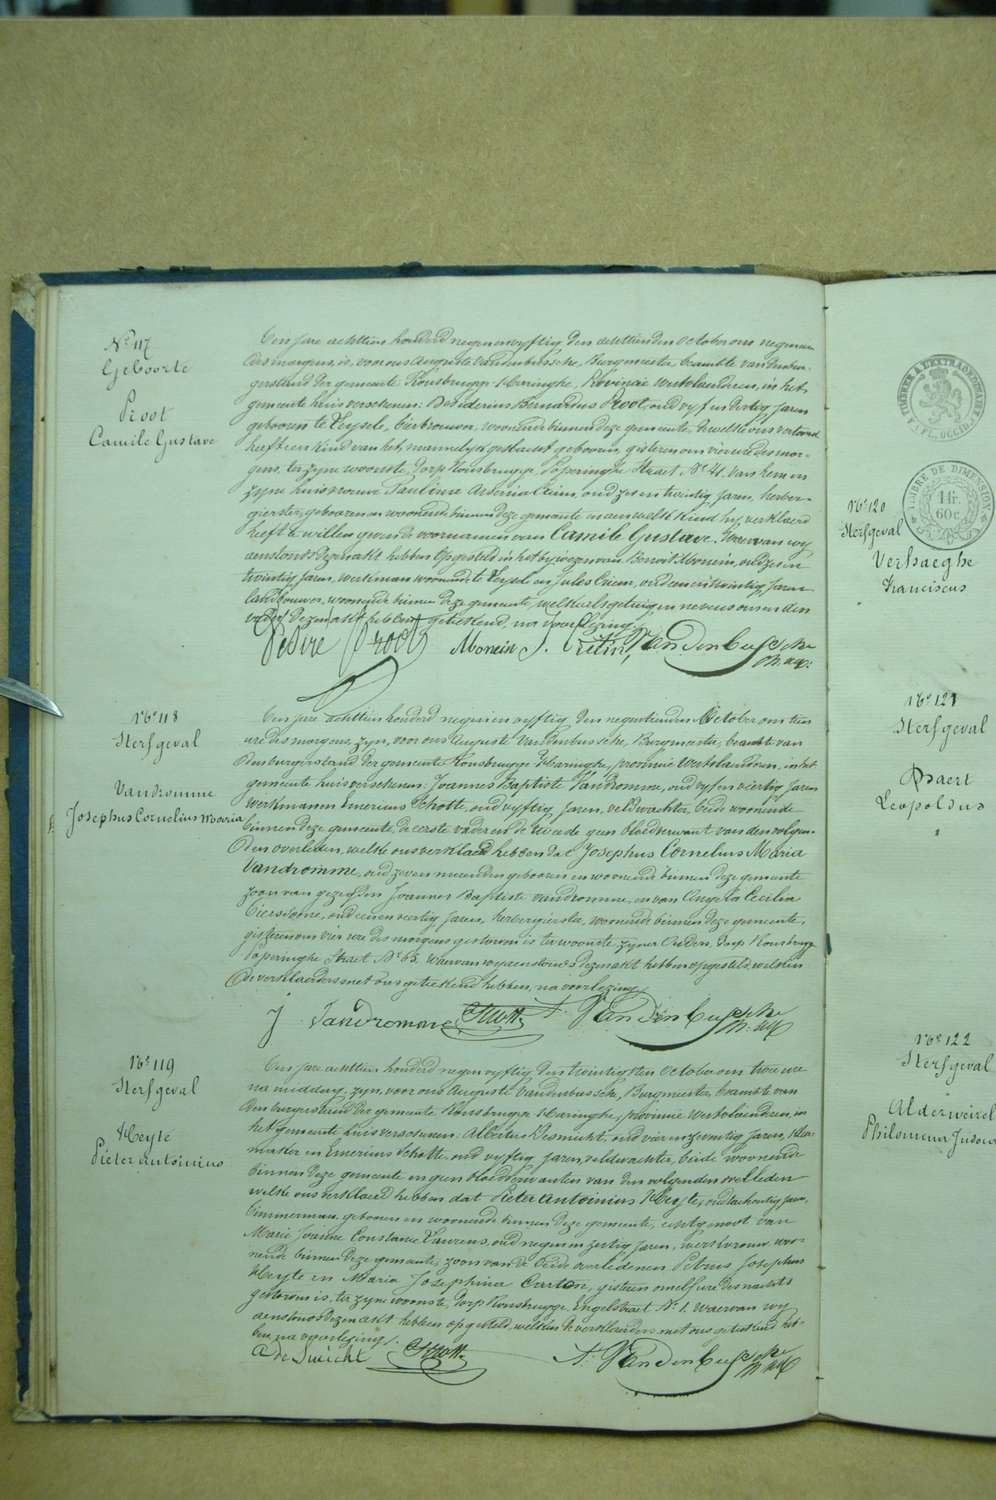 No 117
Geboorte
Proot
Camile Gustave
Den jare achttien honderd negen en vyftig den achttienden October om negen ure
des morgens, is, voor ons Auguste Vandenbussche, Burgmeester, beambte van den bur-
gerstand der gemeente Rousbrugge Haringhe, Provincie Westvlaanderen, in het
gemeente huis verschenen: Desiderius Bernardus Proot, oud vyf en dertig Jaren
geboren te Leysele, bierbrouwer, woonende binnen deze gemeente, dewelke ons vertoond
heeft een kind van het mannelyk geslacht geboren, gisteren om vier ure des mor-
gens, ter zyne woonste, dorp Rousbrugge Poperinghe Straet No 41. van hem en
zyne huisvrouwe Pauline oud zes en twintig Jaren, herber-
gierster, geboren en woonende binnen deze gemeente en aen welk kind hy verklaerd
heeft te willen geven de voornamen van Camile Gustave. Waervan wy
aenstonds dezen akt hebben opgesteld in het bywezen van Benoit Monein, oud zes en
twintig Jaren, werkman woonende te Leysele en Jules Cretin, oud een en twintig Jaren
landbouwer, woonende binnen deze gemeente, welke als getuigen nevens ons en den
vader dezen akt hebben geteekend, na voorlezing.
Desire Proot Monein J. Cretin, VandenBussche
No 118
Sterfgeval
Vandromme
Josephus Cornelius Maria
Den jare achttien honderd negen en vyftig den negentienden October om tien
ure des morgens, zyn, voor ons Auguste Vandenbussche, Burgmeester, beambte van
den burgerstand der gemeente Rousbrugge Haringhe, provincie Westvlaanderen, in het
gemeente huis verschenen Joannes Baptiste Vandromme, oud vyf en viertig Jaren
werkman en Emerius Schotte, oud vyftig Jaren, veldwachter, beide woonende
binnen deze gemeente, de eerste vader en de tweede geen bloedverwant van den volgen-
den overleden, welke ons verklaerd hebben dat Josephus Cornelius Maria
Vandromme, oud zeven maenden geboren en woonende binnen deze gemeente
zoon van gezegden Joannes Baptiste Vandromme, en van Angela Cecilia
oud een en veertig Jaren, herbergierster, woonende binnen deze gemeente,
gisteren om vier ure des morgens gestorven is ter woonste zyner Ouders, dorp Rousbrugge
Poperinghe Straet No 65. waervan wy aenstonds dezen akt hebben opgesteld, welken
de verklaerders met ons geteekend hebben, na voorlezing.
J. Vandromme Schotte A. VandenBussche
No 119
Sterfgeval
Heyte
Pieter antoinius
Den jare achttien honderd negen vyftig den twintigsten October om twee ure
na middag, zyn, voor ons Auguste Vandenbussche, Burgmeester, beambte van
den burgerstand der gemeente Rousbrugge Haringhe, provincie Westvlaanderen, in
het gemeente huis verschenen: Albertus Desmicht, oud vier en zeventig Jaren,
maker en Emerius Schotte, oud vyftig Jaren, veldwachter, beide woonende
binnen deze gemeente en geen bloedverwanten van den volgenden overleden
welke ons verklaerd hebben dat Pieter Antoinius Heyte, oud achtentig Jaren,
timmerman, geboren en woonende binnen deze gemeente, echtgenoot van
Marie Joanne Constance Laurens, oud negen en zestig Jaren, werkvrouw woo-
nende binnen deze gemeente, zoon van de beide overledenen Petrus Josephus
Heyte en Maria Josephina Carton, gisteren om elf ure des nachts
gestorven is, ter zyne woonste, dorp Rousbrugge, Engelstraet No 1. Waervan wy
aenstonds dezen akt hebben opgesteld, welken de verklaerders met ons geteekend heb-
ben na voorlezing.
Schotte A. VandenBussche
TIMBRE A L'EXTRAORDINAIRE
FL. OCCID.
TIMBRE DE DIMENSION
1 fr.
60 c.
No 120
Sterfgeval
Verhaeghe
Franciscus
No 121
Sterfgeval
Leopoldus
No 122
Sterfgeval
Alderweirel
Philomena